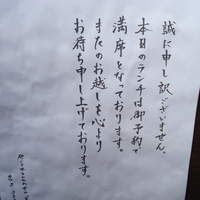 誠に申し訳ございません。
本日のランチは御予約で
満席となっております。
またのお越しを心より
お待ち申し上げております。